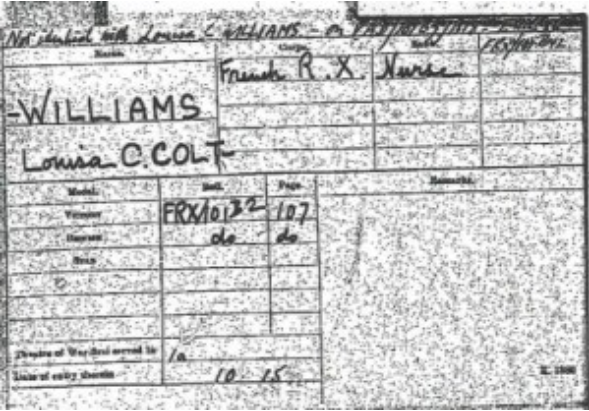 Not identical with Louisa C. WILLIAMS - on
Name. Corps. Rank.
French R.X. Nurse
-WILLIAMS
Louisa C. COLT-
Medal. Roll. Page. Remarks.
Victory FRX/101B2 107
British do do
Star
Theatre of War first served in 1a
Date of entry therein 10. 15.